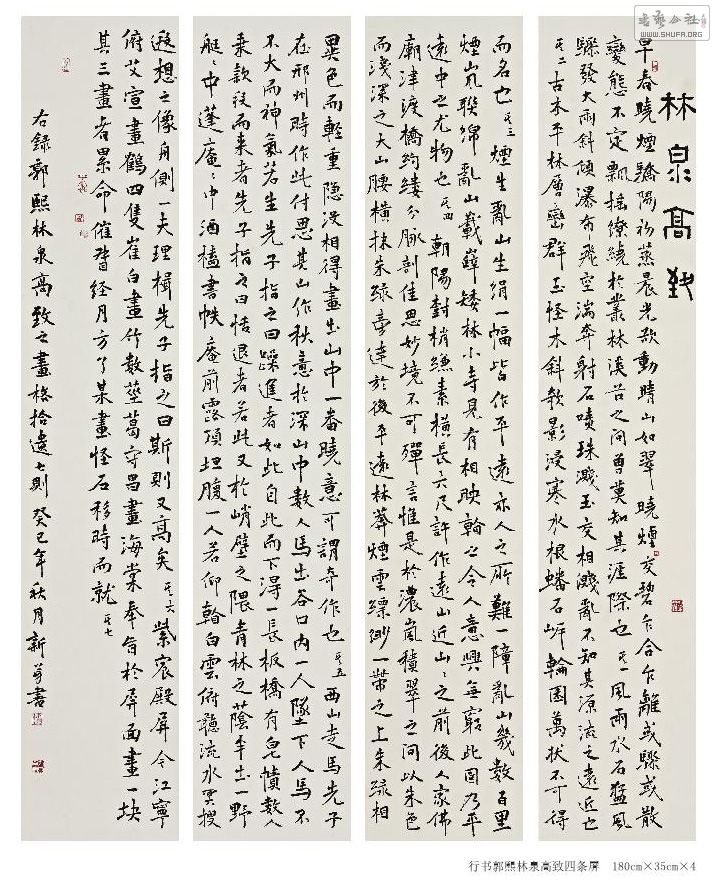 林泉高致
早春曉煙驕陽初蒸晨光欲動晴山如翠曉煙交碧乍合乍離或驟或散
變態不定飄搖繚繞於叢林溪谷之間曾莫知其涯際也 其一 風雨水石猛風
驟發大雨斜傾瀑布飛空湍奔射石噴珠濺玉交相濺亂不知其源流之遠近也
其二 古木平林層巒群玉怪木斜欹影浸寒水根蟠石岸輪囷萬狀不可得
而名也 其三 煙生亂山生絹一幅皆作平遠亦人之所難一障亂山幾數百里
煙嵐聯綿亂山矮林小寺見有相映令人意興無窮此圖乃平
遠中之尤物也 其四 朝陽封梢縑素橫長六尺許作遠山近山々之前後人家佛
廟津渡橋約縷分脈剖佳思妙境不可殫言惟是於濃嵐積翠之間以朱色
而淺深之大山腰橫抹朱綠達於後平遠林莽煙雲縹緲一帶之上朱綠相
異色而輕重隱沒相得畫出山中一番曉意可謂奇作也 其五 西山走馬先子
在邢州時作此付思其山作秋意於深山中數人馬出谷口內一人墜下人馬不
不大而神氣若生先子指之曰躁進者如此自此而下得一長板橋有皂幘數人
乘款段而來者先子指之曰恬退者若此又於峭壁之隈青林之蔭半出一野
艇々中蓬庵々中酒榼書帙庵前露頂坦腹一人若仰白雲俯聽流水冥搜
遐想之像舟側一夫理楫先子指之曰斯則又高矣 其六 紫宸殿屏令江寧
俯艾宣畫鶴四隻崔白畫竹數莖葛守昌畫海棠奉旨於屏面畫一块
其三畫者累命催督經月方了某畫怪石移時而就 其七
右錄郭熙林泉高致之畫格拾遺七則 癸巳年秋月新書
行书郭熙林泉高致四条屏 180cm×35cm×4
WWW.SHUFA.ORG